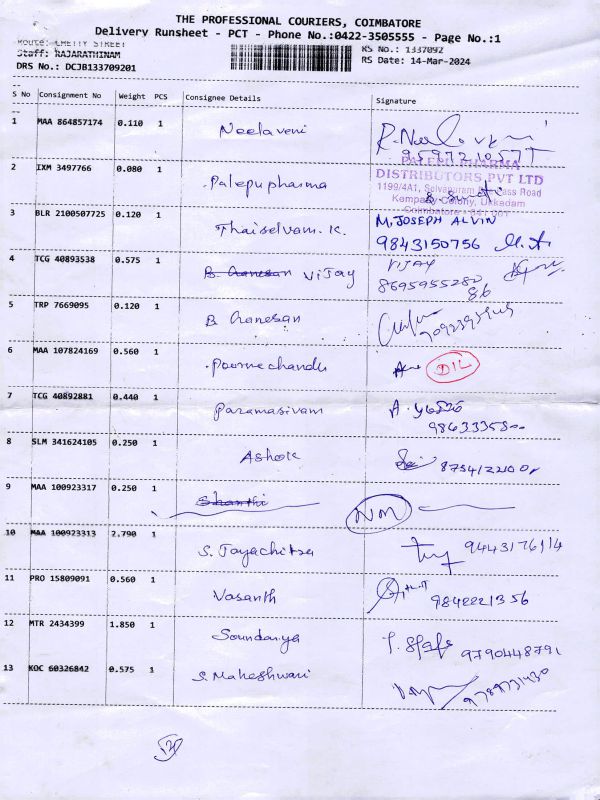 THE PROFESSIONAL COURIERS, COIMBATORE
Delivery Runsheet - PCT - Phone No.:0422-3505555 - Page No.:1
Route: CHETTY STREET
Staff: RAJARATHINAM RS No.: 1337092
DRS No.: DCJB133709201 RS Date: 14-Mar-2024
S No Consignment No Weight PCS Consignee Details Signature
1 MAA 864857174 0.110 1 Neelaveni
2 IXM 3497766 0.080 1 .Palepupharma
PALEPU PHARMA
DISTRIBUTORS PVT LTD
1199/4A1, Selvapuram
Kempatty Colony, Ukkadam
Coimbatore - 641 001
3 BLR 2100507725 0.120 1 Thaiselvam.K. M.JOSEPH ALVIN
9843150756
4 TCG 40893538 0.575 1 B. Ganesan VIJAY VIJAY
8695955280
5 TRP 7669095 0.120 1 B Ganesan
6 MAA 107824169 0.560 1 .Poornechandu DIL
7 TCG 40892881 0.440 1 Paramasivam
8 SLM 341624105 0.250 1 Ashok
9 MAA 100923317 0.250 1 Shanthi
10 MAA 100923313 2.790 1 S. Jayachitra
11 PRO 15809091 0.560 1 Vasanth 9842221356
12 MTR 2434399 1.850 1 Soundarya 9790448791
13 KOC 60326842 0.575 1 S. Maheshwari